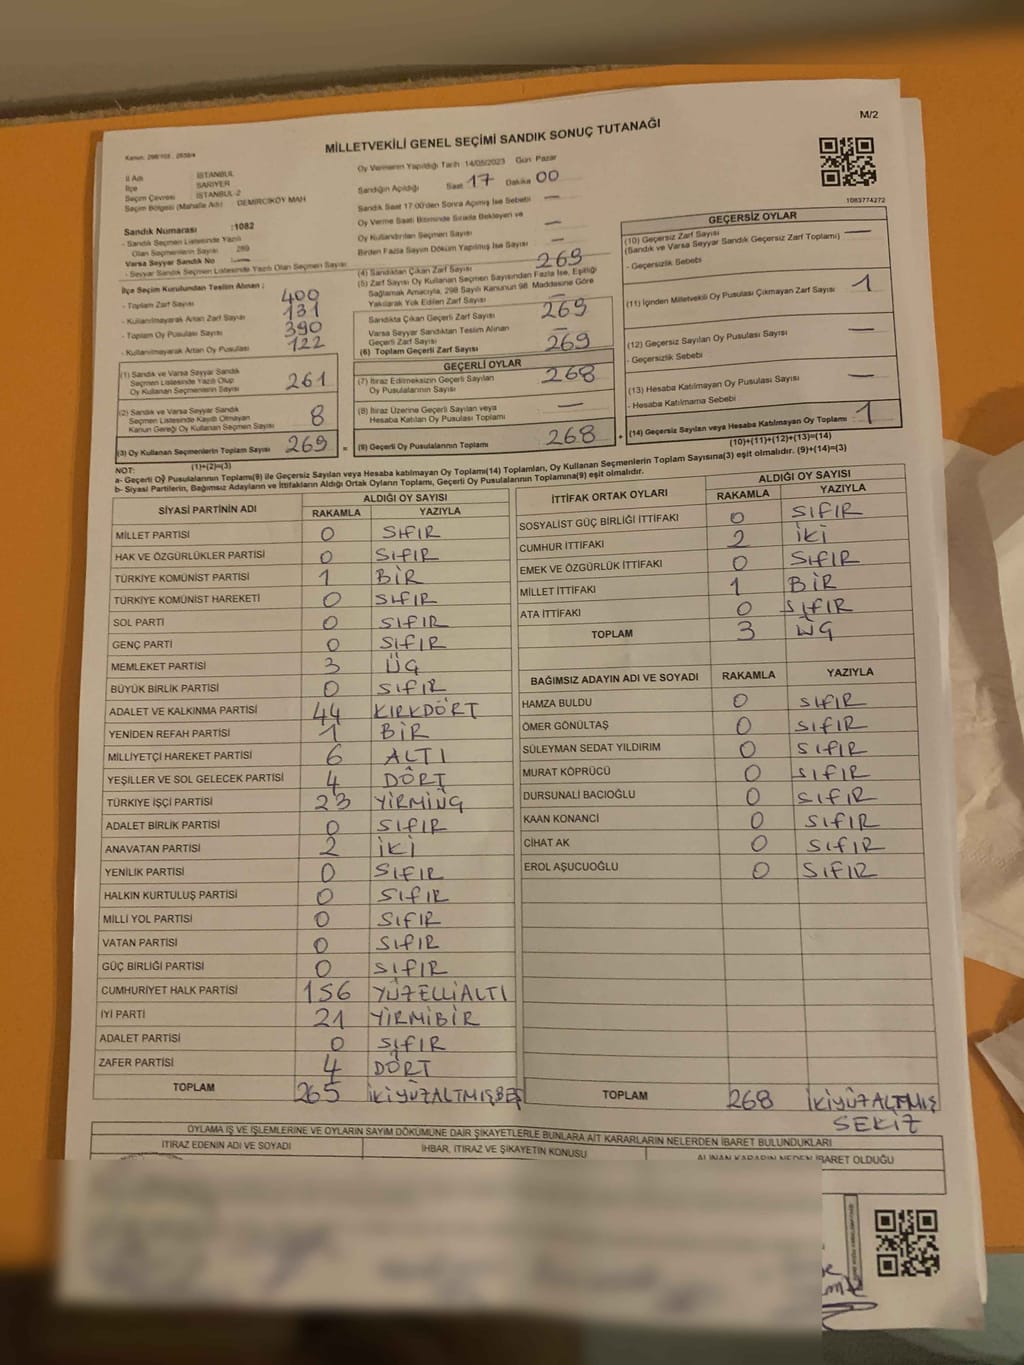 M/2
MİLLETVEKİLİ GENEL SEÇİMİ SANDIK SONUÇ TUTANAĞI
İl Adı : İSTANBUL
İlçe : SARIYER
Seçim Çevresi : İSTANBUL-2
Seçim Bölgesi (Mahalle Adı) : DEMİRCİKÖY MAH
Oy Vermenin Yapıldığı Tarih 14/05/2023 Gün Pazar
Sandığın Açıldığı Saat 17 Dakika 00
Sandık Saat 17:00'den Sonra Açılmış İse Sebebi —
Oy Verme Saati Bitiminde Sırada Bekleyen ve
Oy Kullandırılan Seçmen Sayısı —
Birden Fazla Sayım Döküm Yapılmış İse Sayısı —
1083774272
Sandık Numarası :1082
- Sandık Seçmen Listesinde Yazılı
Olan Seçmenlerin Sayısı 289
Varsa Seyyar Sandık No
- Seyyar Sandık Seçmen Listesinde Yazılı Olan Seçmen Sayısı
İlçe Seçim Kurulundan Teslim Alınan ;
- Toplam Zarf Sayısı 400
- Kullanılmayarak Artan Zarf Sayısı 131
- Toplam Oy Pusulası Sayısı 390
- Kullanılmayarak Artan Oy Pusulası 122
(1) Sandık ve Varsa Seyyar Sandık
Seçmen Listesinde Yazılı Olup
Oy Kullanan Seçmenlerin Sayısı 261
(2) Sandık ve Varsa Seyyar Sandık
Seçmen Listesinde Kayıtlı Olmayan
Kanun Gereği Oy Kullanan Seçmen Sayısı 8
(3) Oy Kullanan Seçmenlerin Toplam Sayısı 269 =
(1)+(2)=(3)
(4) Sandıktan Çıkan Zarf Sayısı 269
(5) Zarf Sayısı Oy Kullanan Seçmen Sayısından Fazla İse, Eşitliği
Sağlamak Amacıyla, 298 Sayılı Kanunun 98. Maddesine Göre
Yakılarak Yok Edilen Zarf Sayısı —
Sandıkta Çıkan Geçerli Zarf Sayısı 269
Varsa Seyyar Sandıktan Teslim Alınan
Geçerli Zarf Sayısı —
(6) Toplam Geçerli Zarf Sayısı 269
GEÇERLİ OYLAR
(7) İtiraz Edilmeksizin Geçerli Sayılan
Oy Pusulalarının Sayısı 268
(8) İtiraz Üzerine Geçerli Sayılan veya
Hesaba Katılan Oy Pusulası Toplamı —
(9) Geçerli Oy Pusulalarının Toplamı 268 +
GEÇERSİZ OYLAR
(10) Geçersiz Zarf Sayısı —
(Sandık ve Varsa Seyyar Sandık Geçersiz Zarf Toplamı)
- Geçersizlik Sebebi
(11) İçinden Milletvekili Oy Pusulası Çıkmayan Zarf Sayısı 1
(12) Geçersiz Sayılan Oy Pusulası Sayısı —
- Geçersizlik Sebebi
(13) Hesaba Katılmayan Oy Pusulası Sayısı —
- Hesaba Katılmama Sebebi
(14) Geçersiz Sayılan veya Hesaba Katılmayan Oy Toplamı 1
(10)+(11)+(12)+(13)=(14)
NOT:
a- Geçerli Oy Pusulalarının Toplamı(9) ile Geçersiz Sayılan veya Hesaba katılmayan Oy Toplamı(14) Toplamları, Oy Kullanan Seçmenlerin Toplam Sayısına(3) eşit olmalıdır. (9)+(14)=(3)
b- Siyasi Partilerin, Bağımsız Adayların ve İttifakların Aldığı Ortak Oyların Toplamı, Geçerli Oy Pusulalarının Toplamına(9) eşit olmalıdır.
SİYASİ PARTİNİN ADI ALDIĞI OY SAYISI
RAKAMLA YAZIYLA
MİLLET PARTİSİ 0 SIFIR
HAK VE ÖZGÜRLÜKLER PARTİSİ 0 SIFIR
TÜRKİYE KOMÜNİST PARTİSİ 1 BİR
TÜRKİYE KOMÜNİST HAREKETİ 0 SIFIR
SOL PARTİ 0 SIFIR
GENÇ PARTİ 0 SIFIR
MEMLEKET PARTİSİ 3 ÜÇ
BÜYÜK BİRLİK PARTİSİ 0 SIFIR
ADALET VE KALKINMA PARTİSİ 44 KIRKDÖRT
YENİDEN REFAH PARTİSİ 1 BİR
MİLLİYETÇİ HAREKET PARTİSİ 6 ALTI
YEŞİLLER VE SOL GELECEK PARTİSİ 4 DÖRT
TÜRKİYE İŞÇİ PARTİSİ 23 YİRMİÜÇ
ADALET BİRLİK PARTİSİ 0 SIFIR
ANAVATAN PARTİSİ 2 İKİ
YENİLİK PARTİSİ 0 SIFIR
HALKIN KURTULUŞ PARTİSİ 0 SIFIR
MİLLİ YOL PARTİSİ 0 SIFIR
VATAN PARTİSİ 0 SIFIR
GÜÇ BİRLİĞİ PARTİSİ 0 SIFIR
CUMHURİYET HALK PARTİSİ 156 YÜZELLİALTI
İYİ PARTİ 21 YİRMİBİR
ADALET PARTİSİ 0 SIFIR
ZAFER PARTİSİ 4 DÖRT
TOPLAM 265 İKİYÜZALTMIŞBEŞ
İTTİFAK ORTAK OYLARI ALDIĞI OY SAYISI
RAKAMLA YAZIYLA
SOSYALİST GÜÇ BİRLİĞİ İTTİFAKI 0 SIFIR
CUMHUR İTTİFAKI 2 İKİ
EMEK VE ÖZGÜRLÜK İTTİFAKI 0 SIFIR
MİLLET İTTİFAKI 1 BİR
ATA İTTİFAKI 0 SIFIR
TOPLAM 3 ÜÇ
BAĞIMSIZ ADAYIN ADI VE SOYADI RAKAMLA YAZIYLA
HAMZA BULDU 0 SIFIR
ÖMER GÖNÜLTAŞ 0 SIFIR
SÜLEYMAN SEDAT YILDIRIM 0 SIFIR
MURAT KÖPRÜCÜ 0 SIFIR
DURSUNALİ BACIOĞLU 0 SIFIR
KAAN KONANCİ 0 SIFIR
CİHAT AK 0 SIFIR
EROL AŞUCUOĞLU 0 SIFIR
TOPLAM 268 İKİYÜZALTMIŞ
SEKİZ
OYLAMA İŞ VE İŞLEMLERİNE VE OYLARIN SAYIM DÖKÜMÜNE DAİR ŞİKAYETLERLE BUNLARA AİT KARARLARIN NELERDEN İBARET BULUNDUKLARI
İTİRAZ EDENİN ADI VE SOYADI İHBAR, İTİRAZ VE ŞİKAYETİN KONUSU ALINAN KARARIN NEDEN İBARET OLDUĞU